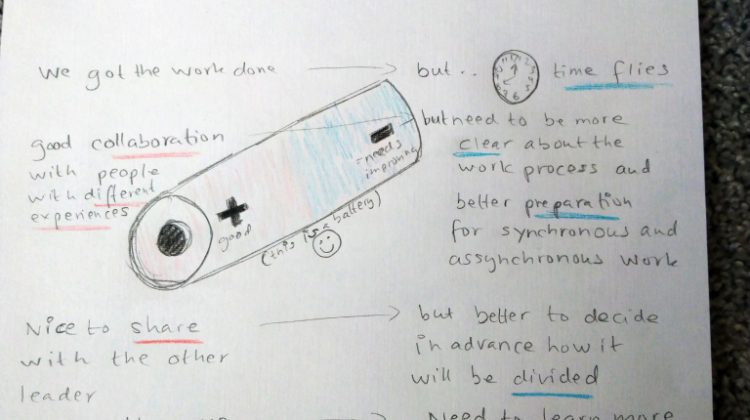 We got the work done
but..
time flies
good collaboration
with people
with different
experiences
but need to be more
clear about the
work process and
better preparation
for synchronous and
assynchronous work
needs
improving
good
(this is a battery)
Nice to share
with the other
leader
but better to decide
in advance how it
will be divided
Need to learn more